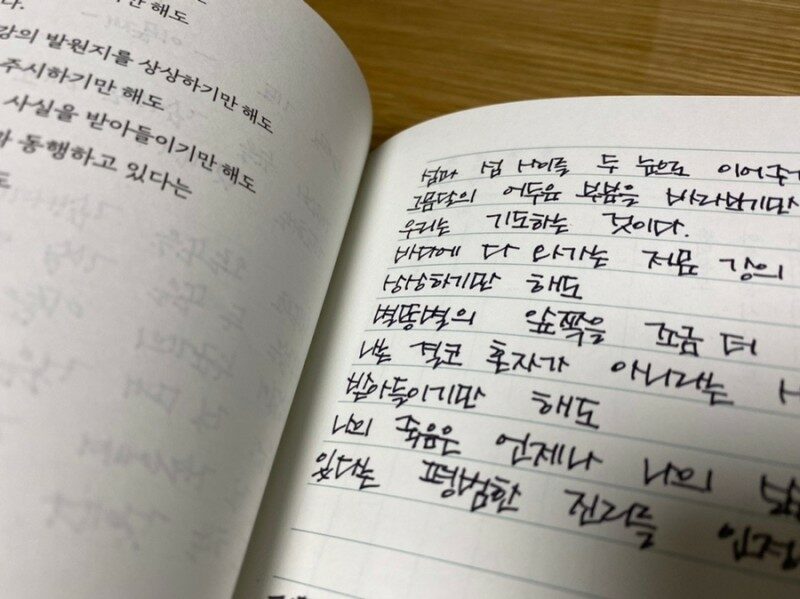 만 해도
다.
강의 발원지를 상상하기만 해도
주시하기만 해도
사실을 받아들이기만 해도
동행하고 있다는
도
섬과 섬 사이를 두 눈으로 이어주
그믐달의 어두운 부분을 바라보기만
우리는 기도하는 것이다.
바다에 다 와가는 저문 강의
상상하기만 해도
별똥별의 앞쪽을 조금 더
나는 결코 혼자가 아니라는 사
받아들이기만 해도
나의 죽음은 언제나 나의 삶
있다는 평범한 진리를